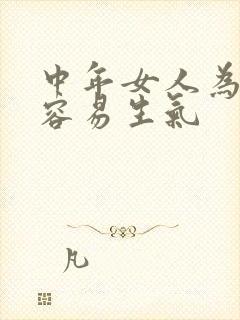 中年女人為
容易生氣
凡